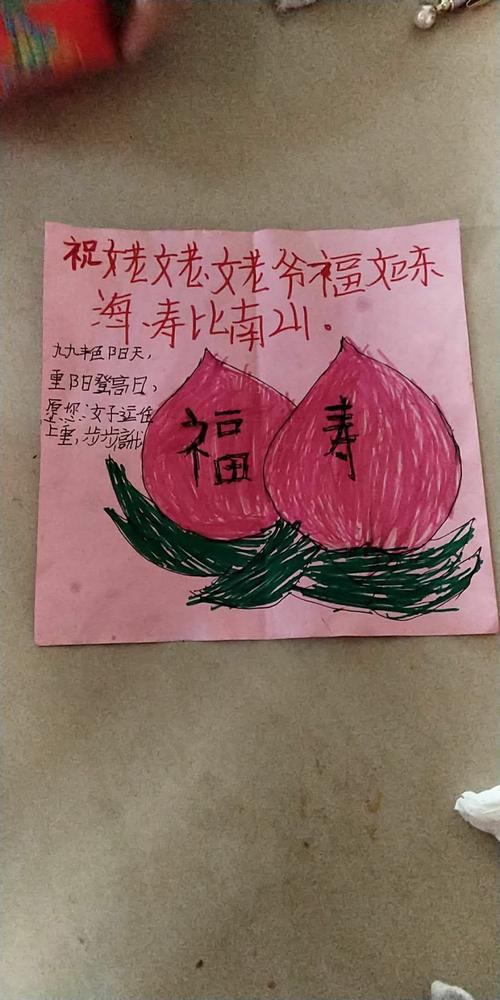 祝姥姥、姥爷福如东
海、寿比南山。
九九艳阳天,
重阳登高日,
愿您好运在
上重,步步高
福
寿